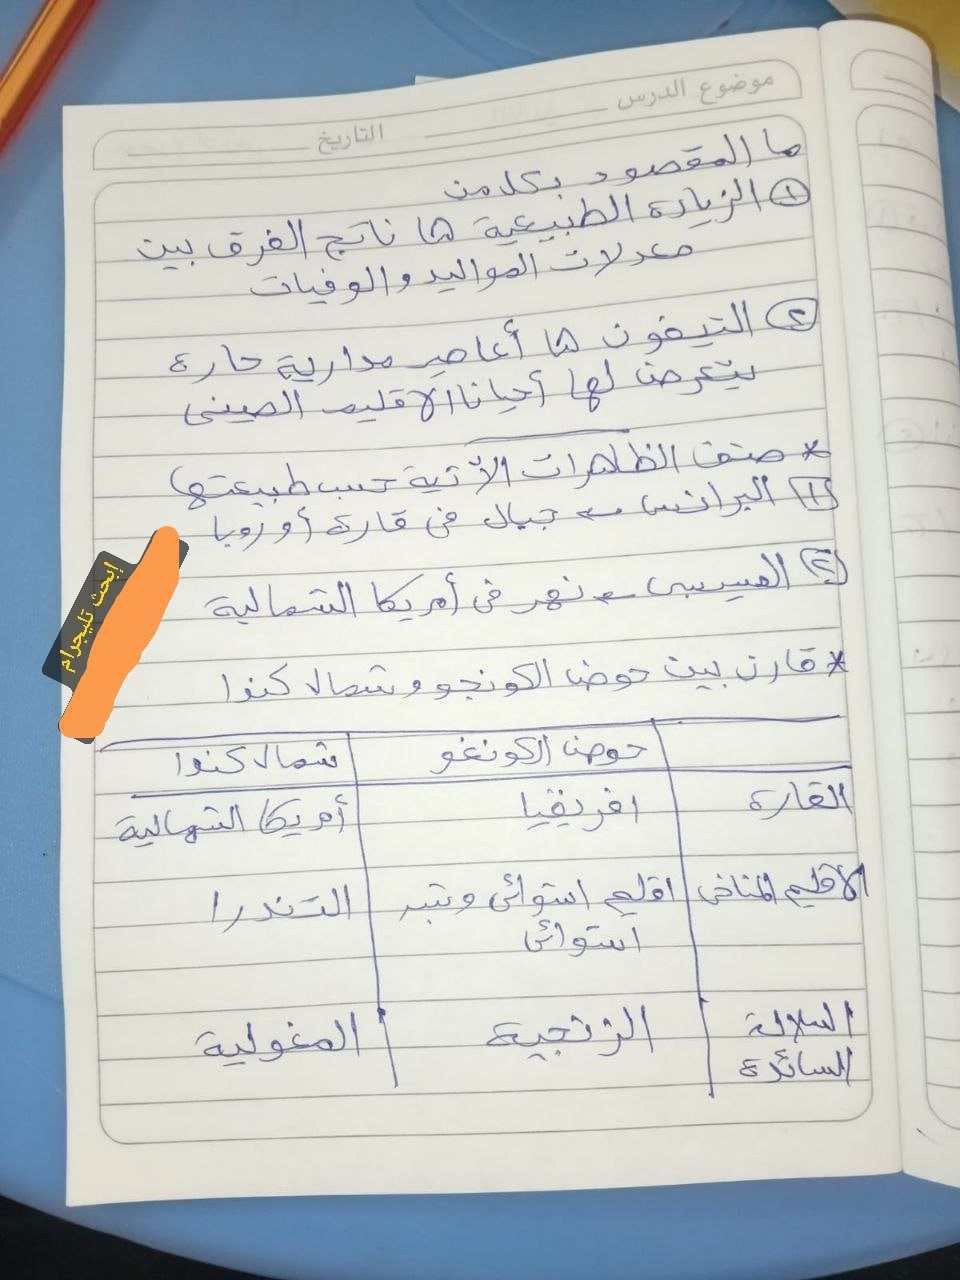 موضوع الدرس
التاريخ
ما المقصود بكل من
١ الزيادة الطبيعية ها ناتج الفرق بين
معدلات المواليد والوفيات
٢ التيفون ها أعاصير مدارية حارة
يتعرض لها أحيانا الاقليم الصينى
* صنف الظاهرات الآتية حسب طبيعتها
١ البرانس ← جبال فى قارة أوروبا
٢ المسيسبى ← نهر فى أمريكا الشمالية
إبحث تليجرام
* قارن بين حوض الكونجو وشمال كندا
حوض الكونغو شمال كندا
القارة افريقيا أمريكا الشمالية
الاقليم المناخى اقليم استوائى وشبه التندرا
استوائى
السلالة الزنجية المغولية
السائدة